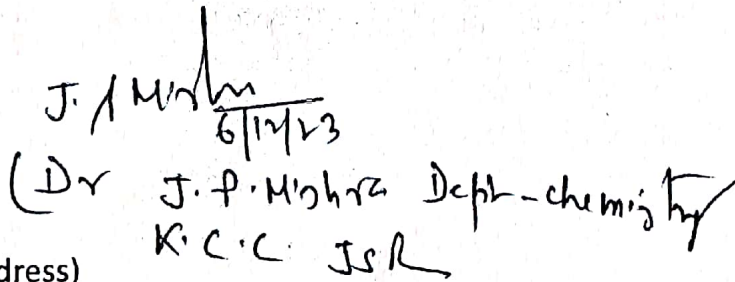 J. P Mishra
6/12/23
(Dr J. P. Mishra Deptt-chemistry
K. C. C. JSR
dress)